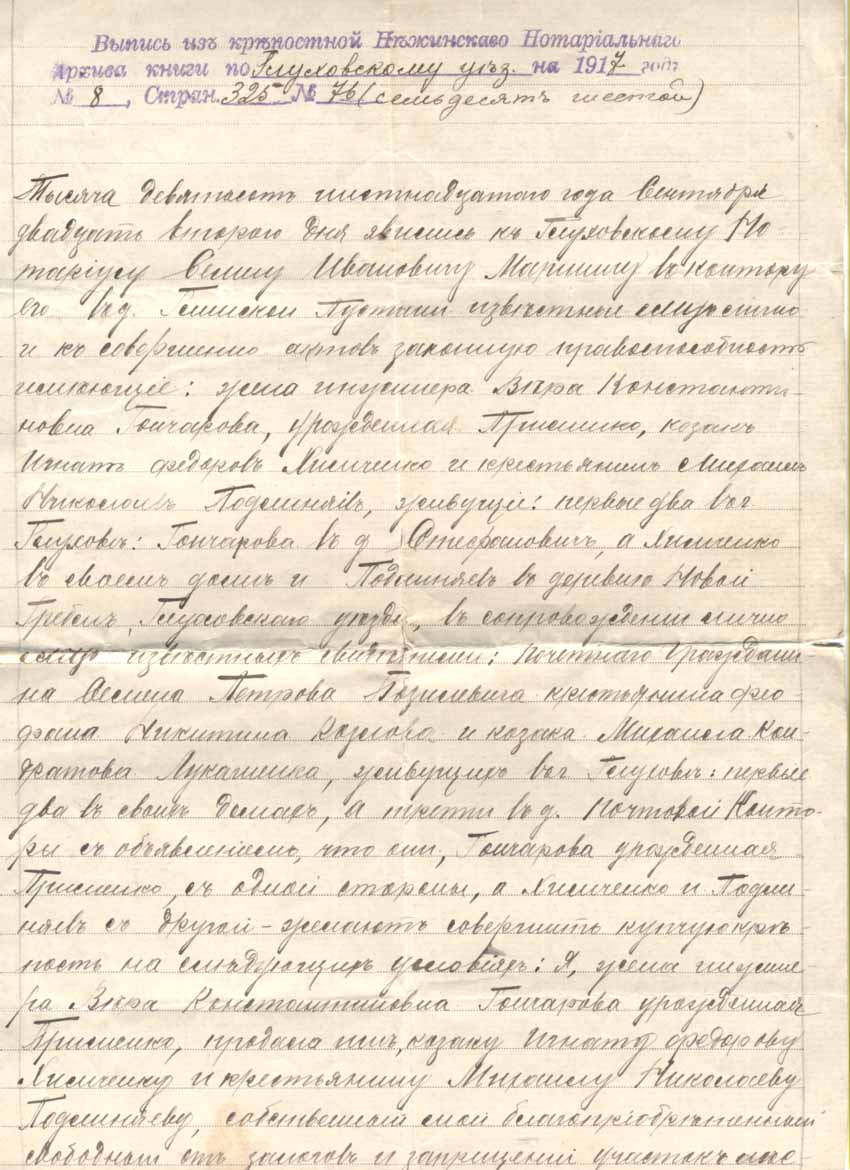 Выпись изъ крѣпостной Нѣжинскаво Нотаріальнаго
Архива книги по Глуховскому уѣз. на 1917 годъ
№ 8, Стран. 325 № 76 (семьдесятъ шестой)
Тысяча девятьсотъ шестнадцатаго года Сентября
двадцать второго дня явились къ Глуховскому Но-
таріусу Ивановичу въ контору
его въ д. извѣстные
и къ совершенію актовъ законную правоспособность
имѣющіе: жена инженера Вѣра Константи-
новна Гончарова, урожденная козакъ
Игнатъ Федоровъ Хильченко и крестьянинъ Михаилъ
Николаевъ живущіе: первые два въ г
Гончарова въ д а Хильченко
въ своемъ домѣ и въ деревнѣ Новой
Греблѣ, Глуховскаго уѣзда, въ сопровожденіи лично
извѣстныхъ свидѣтелей: Почетнаго Граждани-
на Петрова крестьянина Фео-
фана Никитина Козлова и козака Михаила Кон-
дратова Лукашенка, живущихъ въ г Глуховѣ: первые
два въ своихъ домахъ, а третій въ д. Почтовой Конто-
ры съ объявленіемъ, что они, Гончарова урожденная
съ одной стороны, а Хильченко и
съ другой – желаютъ совершить купчую крѣ-
пость на слѣдующихъ условіяхъ: Я, жена инжене-
ра Вѣра Константиновна Гончарова урожденная
продала имъ, козаку Игнату Федорову
Хильченку и крестьянину Михаилу Николаеву
собственный мой благопріобрѣтенный
свободный отъ залоговъ и запрещеній участокъ